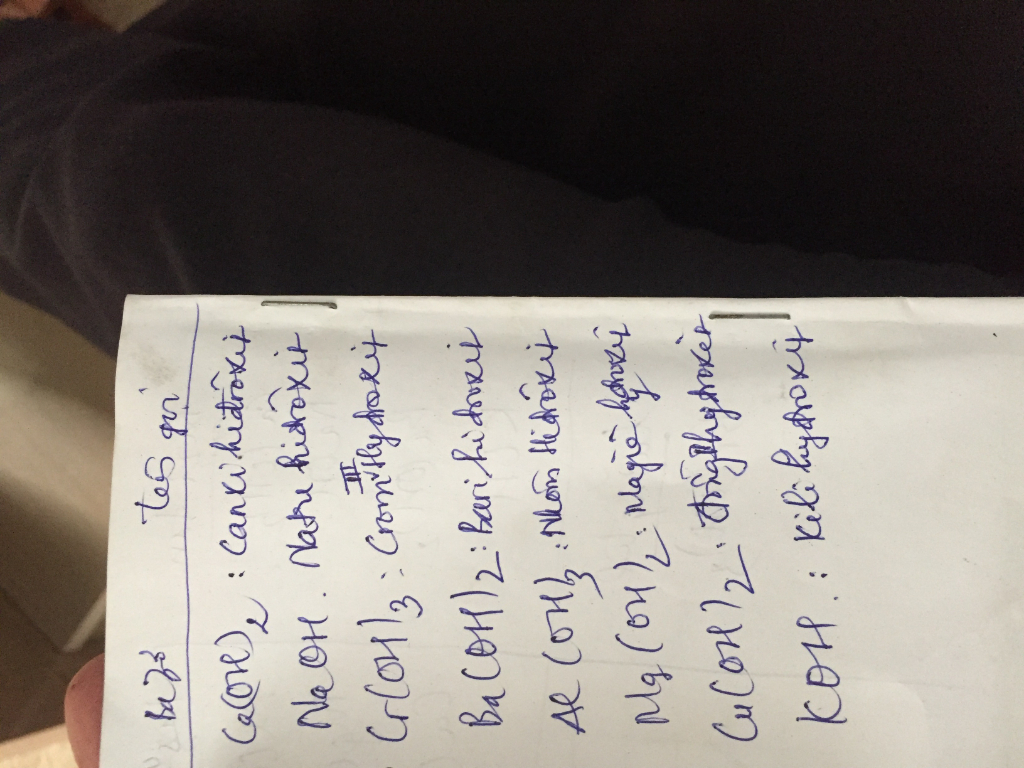 Bazơ tên gọi
Ca(OH)2 : Canxi hiđrôxit
NaOH . Natri hiđrôxit
Cr(OH)3 : Crom III Hydroxit
Ba(OH)2 : Bari hidroxit
Al(OH)3 : Nhôm Hiđrôxit
Mg(OH)2 : Magiê hydroxit
Cu(OH)2 : đồng hydroxit
KOH : Kali hydrôxit